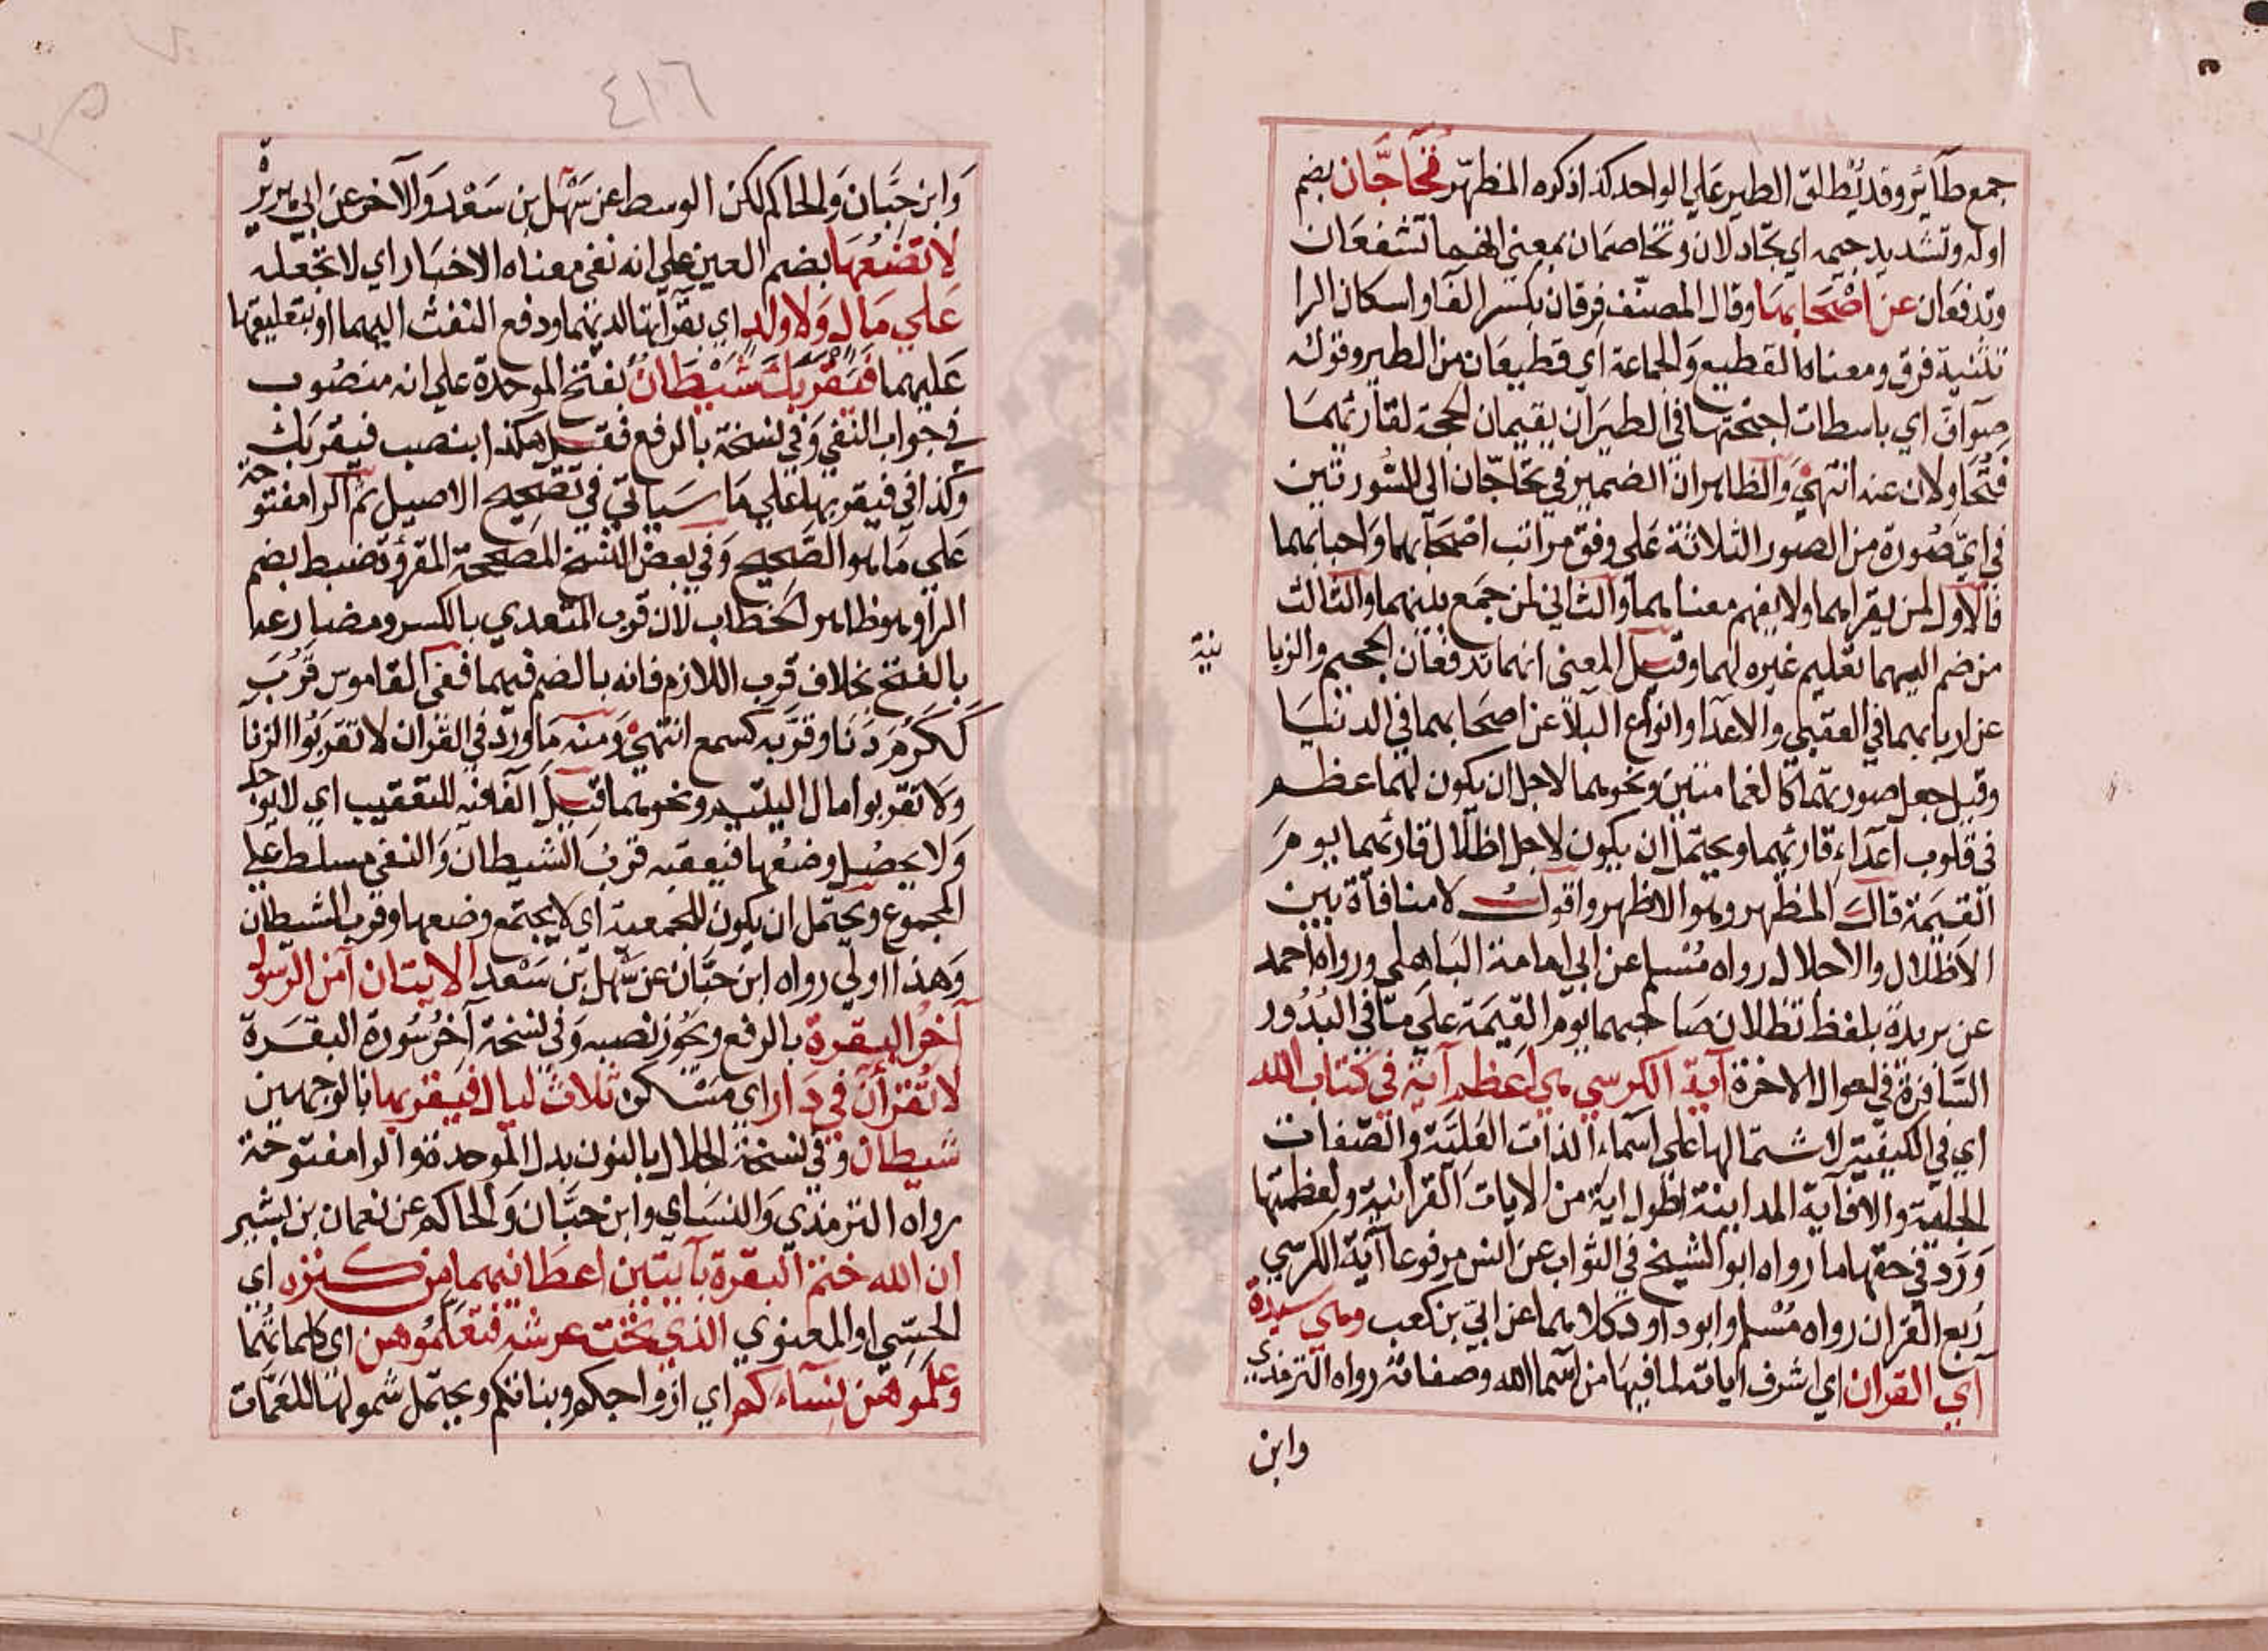 جمع طآئر وقد يُطلق الطير علي الواحد كذا ذكره المظهر تحآجّان بضم
اوله وتشديد جيمه اي تجادلان وتخاصمان بمعني انهما تشفعان
وتدفعان عن اصحابهما وقال المصنّف فِرقان بكسر الفآ واسكان الرا
تثنية فرق ومعناه القطيع والجماعة اي قطيعان من الطير وقوله
صوآفّ اي باسطات اجنحتها في الطيران يقيمان الحجة لقارئهما
ويجادلان عنه انتهيٰ والظاهر ان الضمير في تحاجّان الي السّورتين
في ايّ صُورة من الصور الثلاثة علي وفق مراتب اصحابهما واحبابهما
فالاول لمن يقراهما ولا يفهم معناهما والثاني لمن جمع بينهما والثالث
من ضم اليهما تعليم غيره لهما وقيل المعني انهما تدفعان الجحيم والزبا
نية
عن اربابهما في العقبي والاعدآ وانواع البلآ عن اصحابهما في الدنيا
وقيل جعل صورتهما كالغمامتين ونحوهما لاجل ان يكون لهما عظم
في قلوب اعدآء قارئهما ويحتمل ان يكون لاجل اظلال قارئهما يوم
القيمة قال المظهر وهو الاظهر واقول لا منافاة بين
الاظلال والاحلال رواه مُسْلم عن ابي امامة الباهلي ورواه احمد
عن بريدة بلفظ تظلان صاحبهما يوم القيمة علي ما في البُدُور
السّافرة في احوال الاخرة آية الكرسي هي اعظم آية في كتاب الله
اي في الكيفية لاشتمالها علي اسماء الذات العلية والصّفات
الجلية والا فآية المداينة اطول اية من الايات القرانية ولعظمتها
وَرَد في حقها ما رواه ابو الشيخ في الثواب عن انس مرفوعا آية الكرسي
ربع القران رواه مُسْلم وابو داود كلاهما عن ابيّ بن كعب وهي سيدة
آي القران اي اشرف اياته لما فيها من اسما الله وصفاته رواه الترمذي
وابن
٤١٦
وَابن حبّان وَالحاكم لكن الوسط عن سَهْل بن سَعْد وَالآخر عن ابي هريرة
لا تضعُها بضم العين علي انه نفي معناه الاخبار اي لا تجعله
علي مال ولا ولد اي بقرآتها لديهما ودفع النفث اليهما او بتعليقها
عَليهما فَيَقْرَبَكَ شَيْطَانٌ بفتح الموحدة علي انه منصُوب
في جواب النفي وَفي نسخة بالرفع فقيل هكذا بنصب فيقربك
وكذا في فيقربها علي ما سَياتي في تصحيح الاصيل ثم الرا مفتوحة
علي ما هو الصّحيح وَفي بعض النسخ المصححة المقرؤة ضبط بضم
الرآ وهو ظاهر الخطاب لان قرب المتعدي بالكسر ومضارعه
بالفتح بخلاف قرب اللازم فانه بالضم فيهما ففي القاموس قَرُبَ
كَكَرُمَ دَنَا وقَرِبَه كسمع انتهيٰ ومنه ما ورد في القران لا تقربوا الزنا
ولا تقربوا مال اليتيم ونحوهما قيل الفآ فيه للتعقيب اي لا يوجد
وَلا يحصُل وضعُها فيعقبه قربُ الشيطان وَالنفي مسلط علي
المجموع ويحتمل ان يكون للجمعية اي لا يجتمع وضعها وقرب الشيطان
وَهَذا اولي رواه ابن حبَّان عن سَهْل بْن سَعْد الايتان آمن الرسول
آخر البقرة بالرفع ويجوز نصبه وَفي نسخة آخر سُورة البقرة
لا تُقرَآن في دَار اي مسْكن ثلاث ليال فيقربها بالوجهين
شيطان وَفي نسخة الجلال بالنون بدل الموحدة والرا مفتوحة
رواه الترمذي وَالنسَاي وابن حبَّان وَالحاكم عن نعمان بن بشير
ان الله ختم البقرة بآيتين اعطانيهما من كنزه اي
الحِسّي او المعنوي الذي تحت عرشه فتعلّمُوهن اي كلماتهما
وعلموهن نسآءكم اي ازواجكم وبناتكم ويحتمل شمولها للعمّات